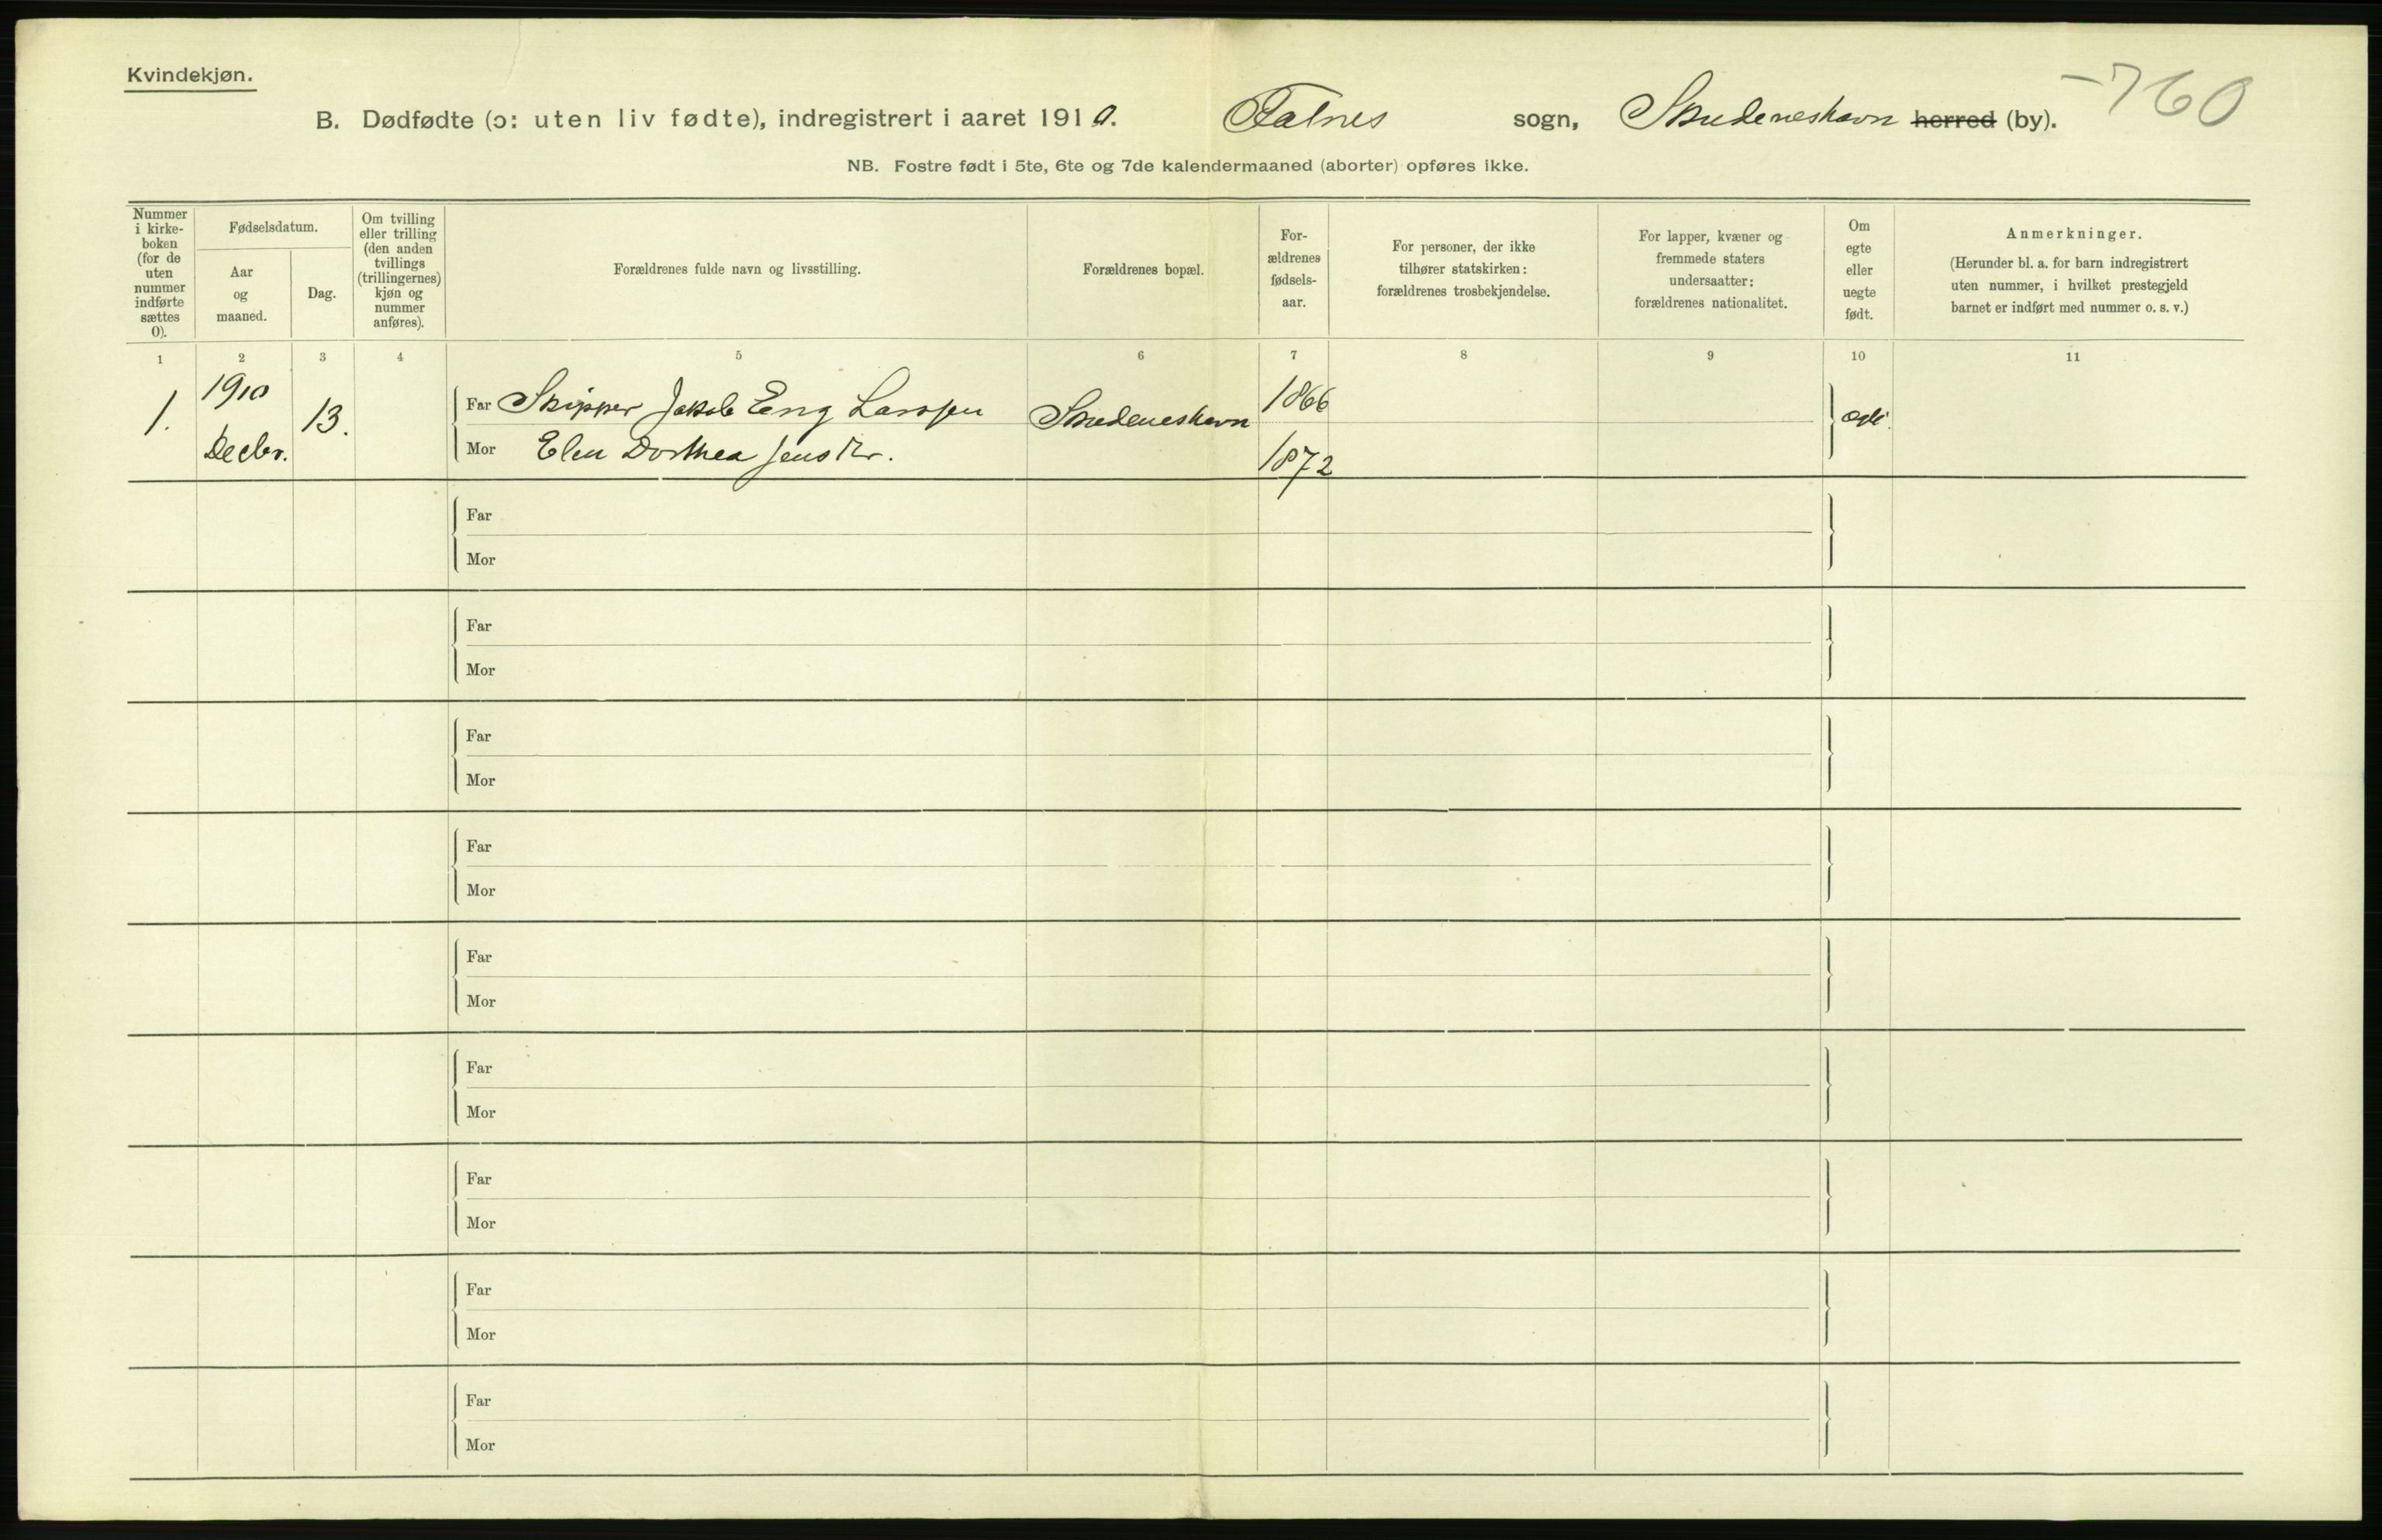 Kvindekjøn.
B. Dødfødte (ɔ: uten liv fødte), indregistrert i aaret 1910. Falnes sogn, Skudeneshavn herred (by). -760
NB. Fostre født i 5te, 6te og 7de kalendermaaned (aborter) opføres ikke.
Nummer
i kirke-
boken
(for de
uten
nummer
indførte
sættes
0).
Fødselsdatum.
Aar
og
maaned.
Dag.
Om tvilling
eller trilling
(den anden
tvillings
(trillingernes)
kjøn og
nummer
anføres).
Forældrenes fulde navn og livsstilling.
Forældrenes bopæl.
For-
ældrenes
fødsels-
aar.
For personer, der ikke
tilhører statskirken:
forældrenes trosbekjendelse.
For lapper, kvæner og
fremmede staters
undersaatter:
forældrenes nationalitet.
Om
egte
eller
uegte
født.
Anmerkninger.
(Herunder bl. a. for barn indregistrert
uten nummer, i hvilket prestegjeld
barnet er indført med nummer o. s. v.)
1 2 3 4 5 6 7 8 9 10 11
1. 1910 Decbr. 13.
Far Skipper Jakob Eng Larssen Skudeneshavn 1866 egte
Mor Elen Dorthea Jensdtr. 1872
Far
Mor
Far
Mor
Far
Mor
Far
Mor
Far
Mor
Far
Mor
Far
Mor
Far
Mor
Far
Mor